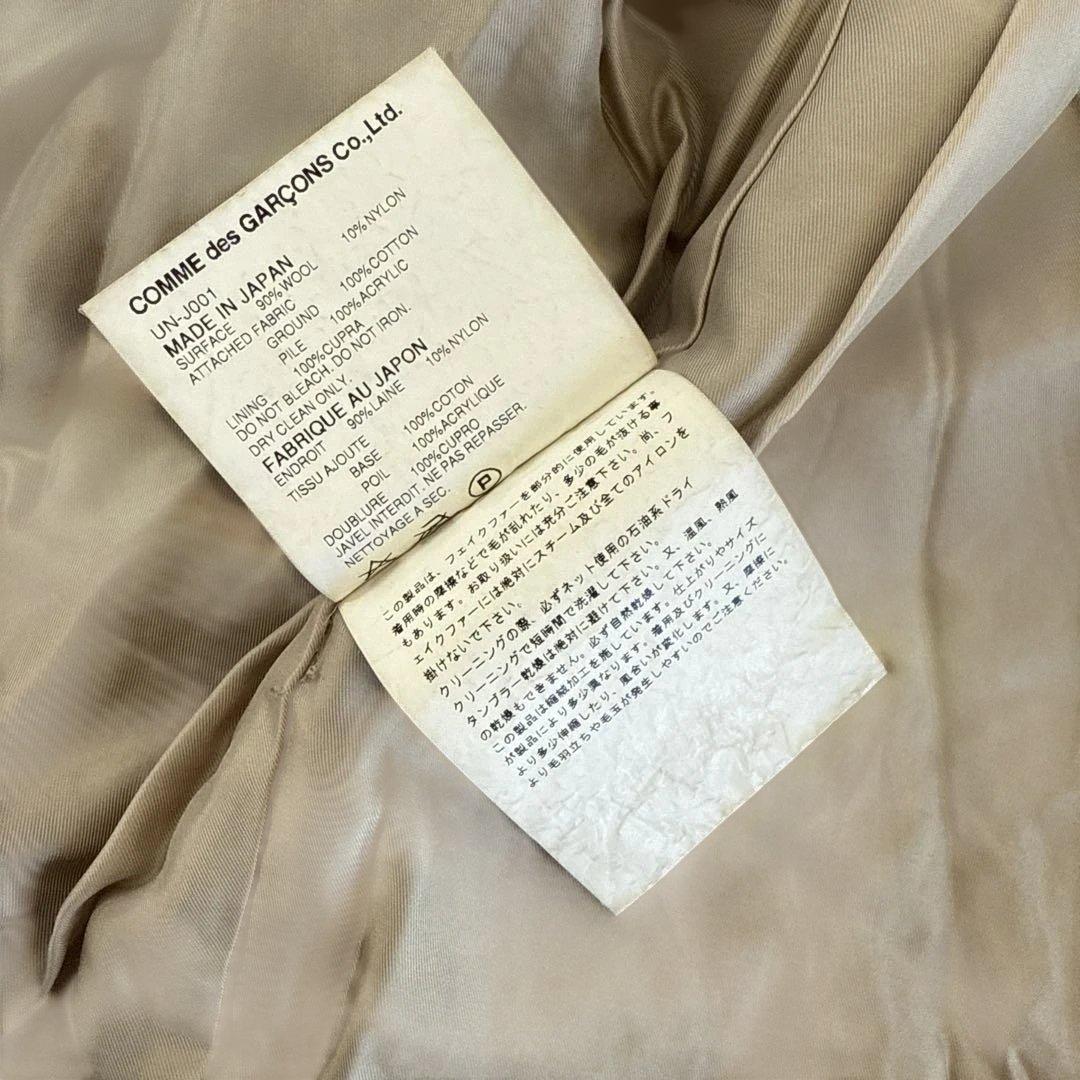 COMME des GARÇONS Co.,Ltd.
UN-J001
MADE IN JAPAN
SURFACE 90%WOOL 10%NYLON
ATTACHED FABRIC
GROUND 100%COTTON
PILE 100%ACRYLIC
LINING 100%CUPRA
DO NOT BLEACH. DO NOT IRON.
DRY CLEAN ONLY.
FABRIQUE AU JAPON
ENDROIT 90%LAINE 10%NYLON
TISSU AJOUTE
BASE 100%COTON
POIL 100%ACRYLIQUE
DOUBLURE 100%CUPRO
JAVEL INTERDIT. NE PAS REPASSER.
NETTOYAGE A SEC.
P
この製品は、フェイクファーを部分的に使用しています。
着用時の摩擦などで毛が乱れたり、多少の毛が抜ける事
もあります。お取り扱いには充分ご注意下さい。尚、フ
ェイクファーには絶対にスチーム及び全てのアイロンを
掛けないで下さい。
クリーニングの際、必ずネット使用の石油系ドライ
クリーニングで短時間で洗濯して下さい。
タンブラー乾燥は絶対に避けて下さい。又、温風、熱風
の乾燥もできません。必ず自然乾燥して下さい。
この製品は縮絨加工を施しています。仕上がりやサイズ
が製品により多少異なります。着用及びクリーニングに
より多少伸縮したり、風合いが変化します。又、摩擦に
より毛羽立ちや毛玉が発生しやすいのでご注意ください。